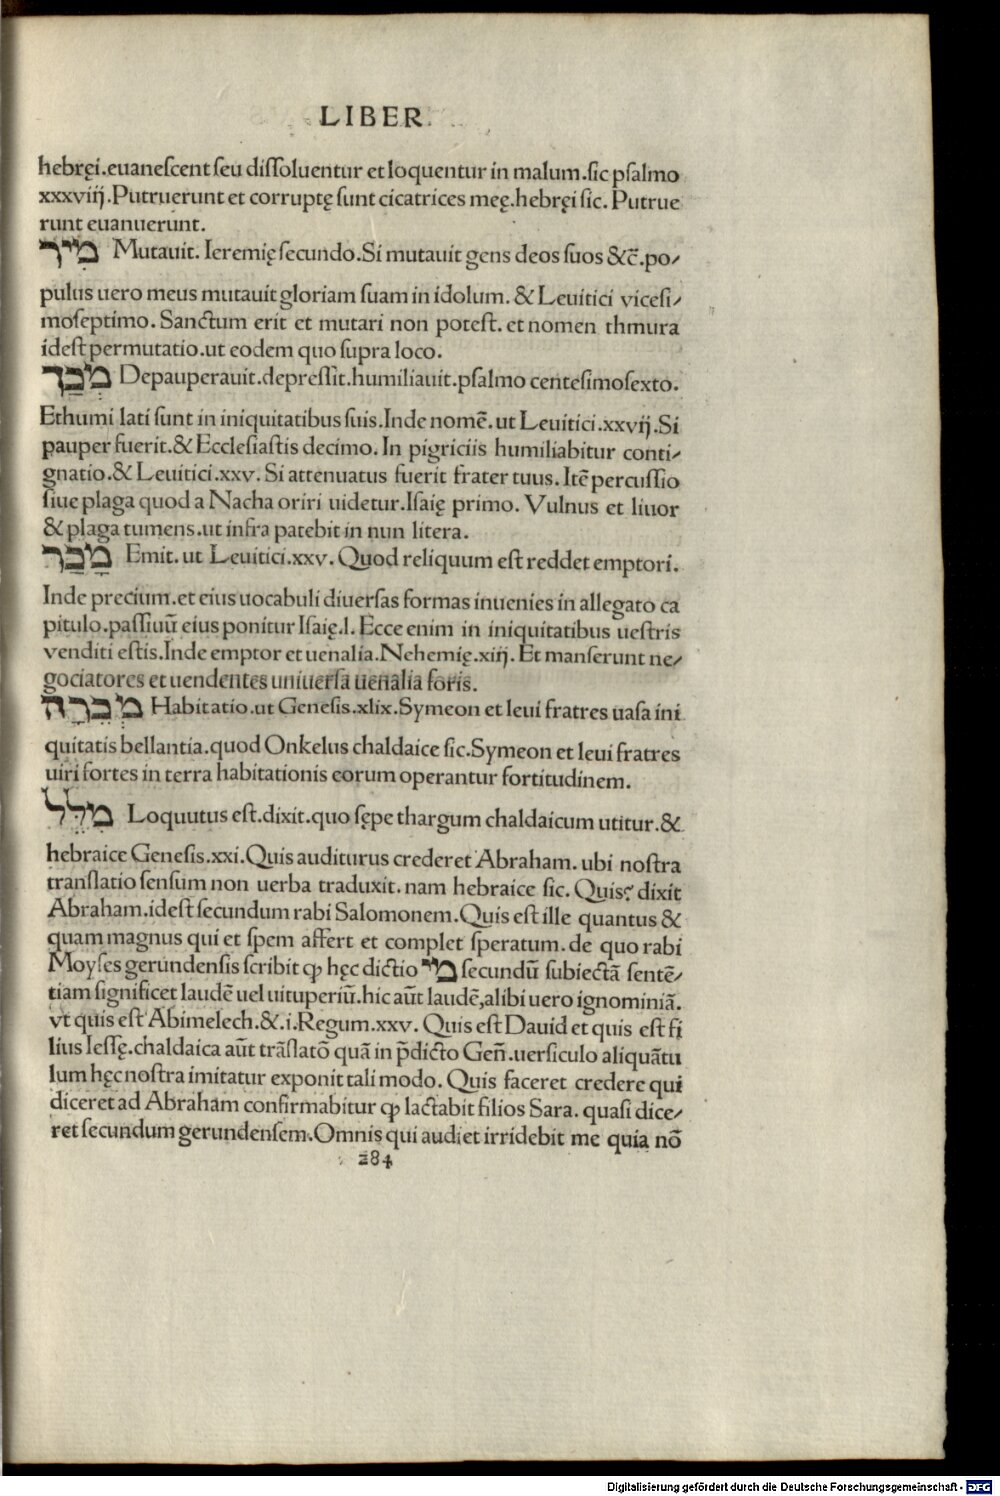 LIBER
hebręi.euaneſcent ſeu diſſoluentur et loquentur in malum.ſic pſalmo
xxxviij.Putruerunt et corruptę ſunt cicatrices meę.hebręi ſic. Putrue
runt euanuerunt.
מִיר Mutauit. Ieremię ſecundo.Si mutauit gens deos ſuos &c̄.po⸗
pulus uero meus mutauit gloriam ſuam in idolum. & Leuitici viceſi⸗
moſeptimo. Sanctum erit et mutari non poteſt. et nomen thmura
ideſt permutatio.ut eodem quo ſupra loco.
מְכַךְ Depauperauit.depreſſit.humiliauit.pſalmo centeſimoſexto.
Et humi lati ſunt in iniquitatibus ſuis.Inde nomē. ut Leuitici.xxvij.Si
pauper fuerit.& Eccleſiaſtis decimo. In pigriciis humiliabitur conti⸗
gnatio.& Leuitici.xxv. Si attenuatus fuerit frater tuus. Itē percuſſio
ſiue plaga quod a Nacha oriri uidetur.Iſaię primo. Vulnus et liuor
& plaga tumens.ut infra patebit in nun litera.
מָכַר Emit. ut Leuitici.xxv. Quod reliquum eſt reddet emptori.
Inde precium.et eius uocabuli diuerſas formas inuenies in allegato ca
pitulo.paſſiuū eius ponitur Iſaię.l. Ecce enim in iniquitatibus ueſtris
venditi eſtis.Inde emptor et uenalia.Nehemię.xiij. Et manſerunt ne⸗
gociatores et uendentes uniuerſa uenalia foris.
מְכֵרָה Habitatio.ut Geneſis.xlix.Symeon et leui fratres uaſa ini
quitatis bellantia.quod Onkelus chaldaice ſic.Symeon et leui fratres
uiri fortes in terra habitationis eorum operantur fortitudinem.
מִלֵּל Loquutus eſt.dixit.quo ſępe thargum chaldaicum utitur.&
hebraice Geneſis.xxi.Quis auditurus crederet Abraham. ubi noſtra
tranſlatio ſenſum non uerba traduxit. nam hebraice ſic. Quis? dixit
Abraham.ideſt ſecundum rabi Salomonem.Quis eſt ille quantus &
quam magnus qui et ſpem affert et complet ſperatum. de quo rabi
Moyſes gerundenſis ſcribit ꝙ hęc dictio מִי ſecundū ſubiectā ſentē⸗
tiam ſignificet laudē uel uituperiū.hic aūt laudē,alibi uero ignominiā.
vt quis eſt Abimelech.&.i.Regum.xxv. Quis eſt Dauid et quis eſt fi
lius Ieſſę.chaldaica aūt trāſlatō quā in p̄dicto Geñ.uerſiculo aliquātu
lum hęc noſtra imitatur exponit tali modo. Quis faceret credere qui
diceret ad Abraham confirmabitur ꝙ lactabit filios Sara. quaſi dice⸗
ret ſecundum gerundenſem.Omnis qui audiet irridebit me quia nō
284
Digitalisierung gefördert durch die Deutsche Forschungsgemeinschaft - DFG